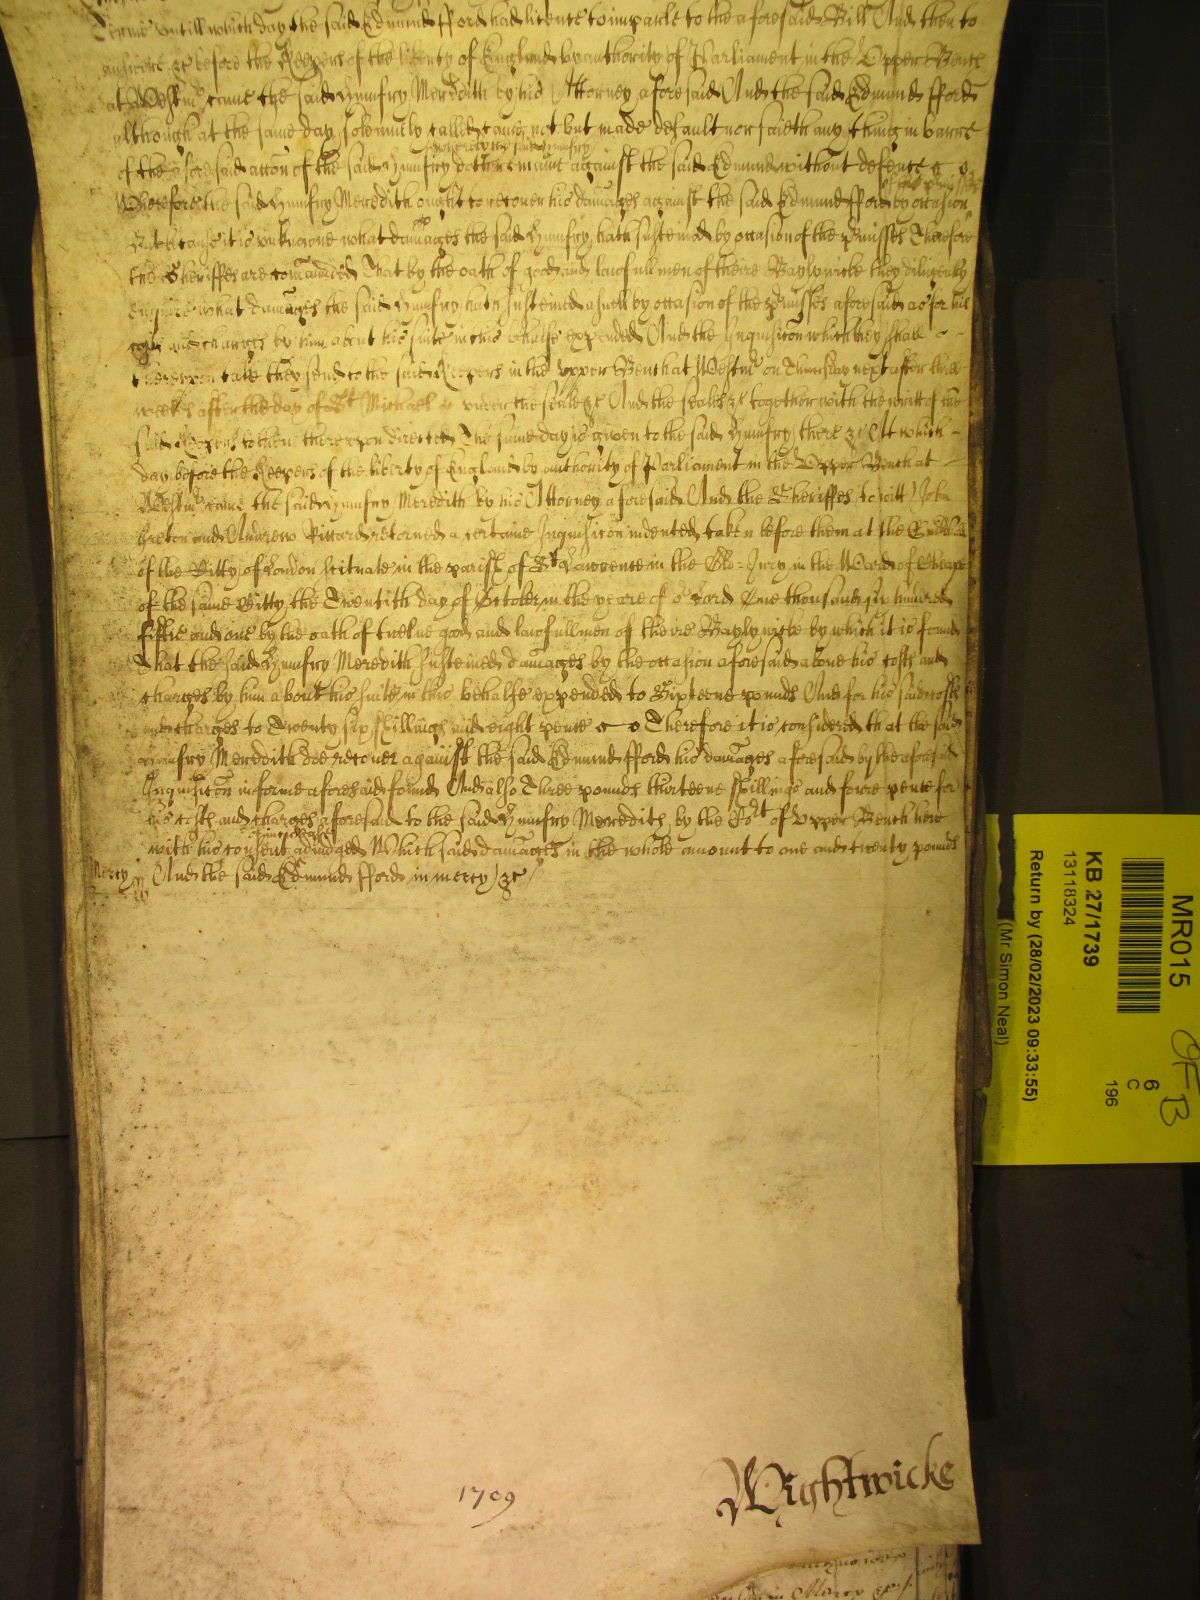 Terme untill which day the said Edmund fford had licence to imparle to the aforesaid Bill And then to
answere &c before the Keepers of the liberty of England by authority of Parliament in the Upper Bench
at Westmr came the said Humfry Meredith by his Attorney aforesaid And the said Edmund fford
although at the same day solemnely called came not but made default nor saieth any thing in barre
of the aforesaid accon of the said Humfry
whereby the said Humfry
doth remaine against the said Edmund without defence
Wherefore the said Humfry Meredith ought to recover his damages against the said Edmund fford by occasion
of the pmisses
But because it is unknowne what damages the said Humfry hath susteined by occasion of the pmisses Therefore
the Sheriffes are comaunded That by the oath of good and lawfull men of theire Baylywicke they diligently
enquire what damages the said Humfry hath susteined aswell by occasion of the pmisses aforesaid as for his
costs and charges by him about his suite in this behalfe expended And the Inquisicon which they shall
thereupon take they send to the said Keepers in the Upper Bench at Westmr on Thursday next after three
weekes after the day of St Michael under the seale &c And the seales &c together with the writt of the
said Keepers to them thereupon directed The same day is given to the said Humfry there &c At which
day before the Keepers of the liberty of England by authority of Parliament in the Upper Bench at
Westmr came the said Humfry Meredith by his Attorney aforesaid And the Sheriffes to witt John
and Andrew Riccard retorned a certaine Inquisicon indented taken before them at the Guildhall
of the Citty of London scituate in the parish of St Lawrence in the Old Jury in the Ward of Cheape
of the same Citty the Twentith day of October in the yeare of or Lord One thousand six hundred
fiftie and one by the oath of twelve good and lawfull men of theire Baylywicke by which it is found
That the said Humfry Meredith susteined damages by the occasion aforesaid above his costs and
charges by him about his suite in this behalfe expended to Sixteene pounds And for his said costs
and charges to Twenty six shillings and eight pence Therefore it is considered that the said
Humfry Meredith doe recover against the said Edmund fford his damages aforesaid by the aforesaid
Inquisicon in forme aforesaid found And also Three pounds thirteene shillings and foure pence for
his costs and charges aforesaid to the said Humfry Meredith by the Cort of Upper Bench here
with his consent
of increase
adiudged Which said damages in the whole amount to one and twenty pounds
Mercy
And the said Edmund fford in mercy &c
1709
Wightwicke
MR015
KB 27/1739
13118324
Return by (28/02/2023 09:33:55)
(Mr Simon Neal)
6
C
196
OFB